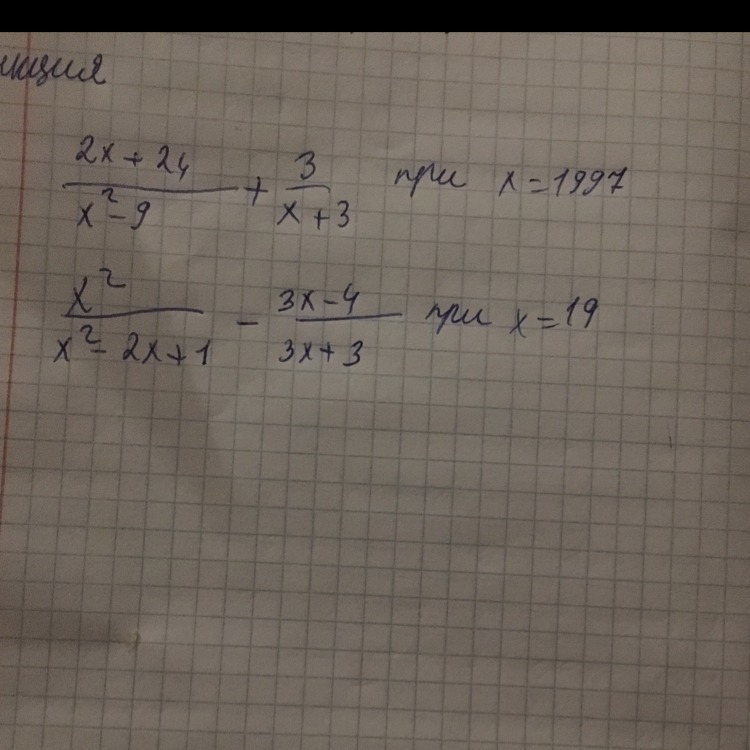 кция
(2x + 24)/(x² - 9) + 3/(x + 3) при x = 1997
x²/(x² - 2x + 1) - (3x - 4)/(3x + 3) при x = 19